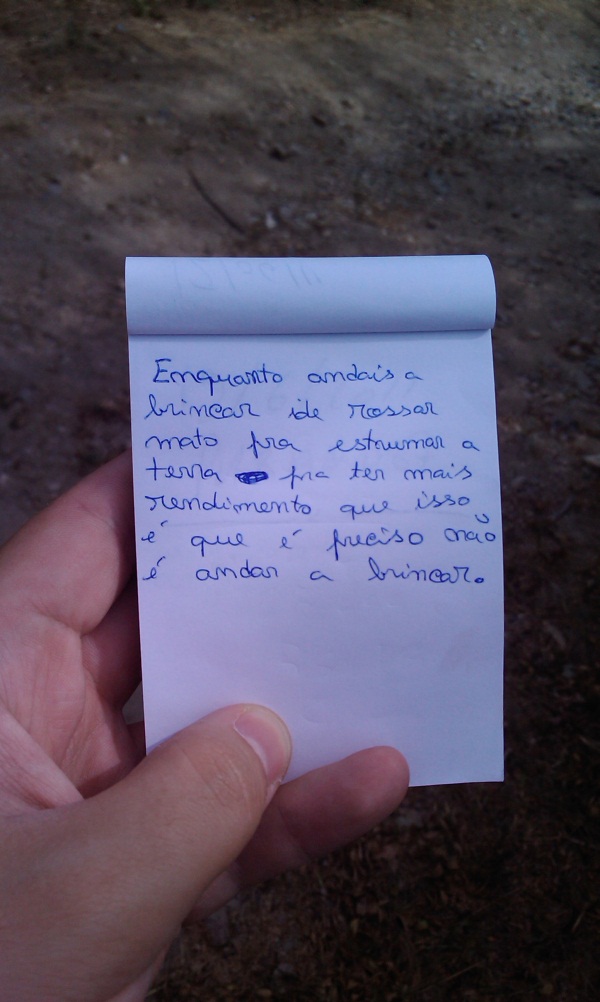 Enquanto andais a
brincar ide rossar
mato pra estrumar a
terra pra ter mais
rendimento que isso
é que é preciso não
é andar a brincar.